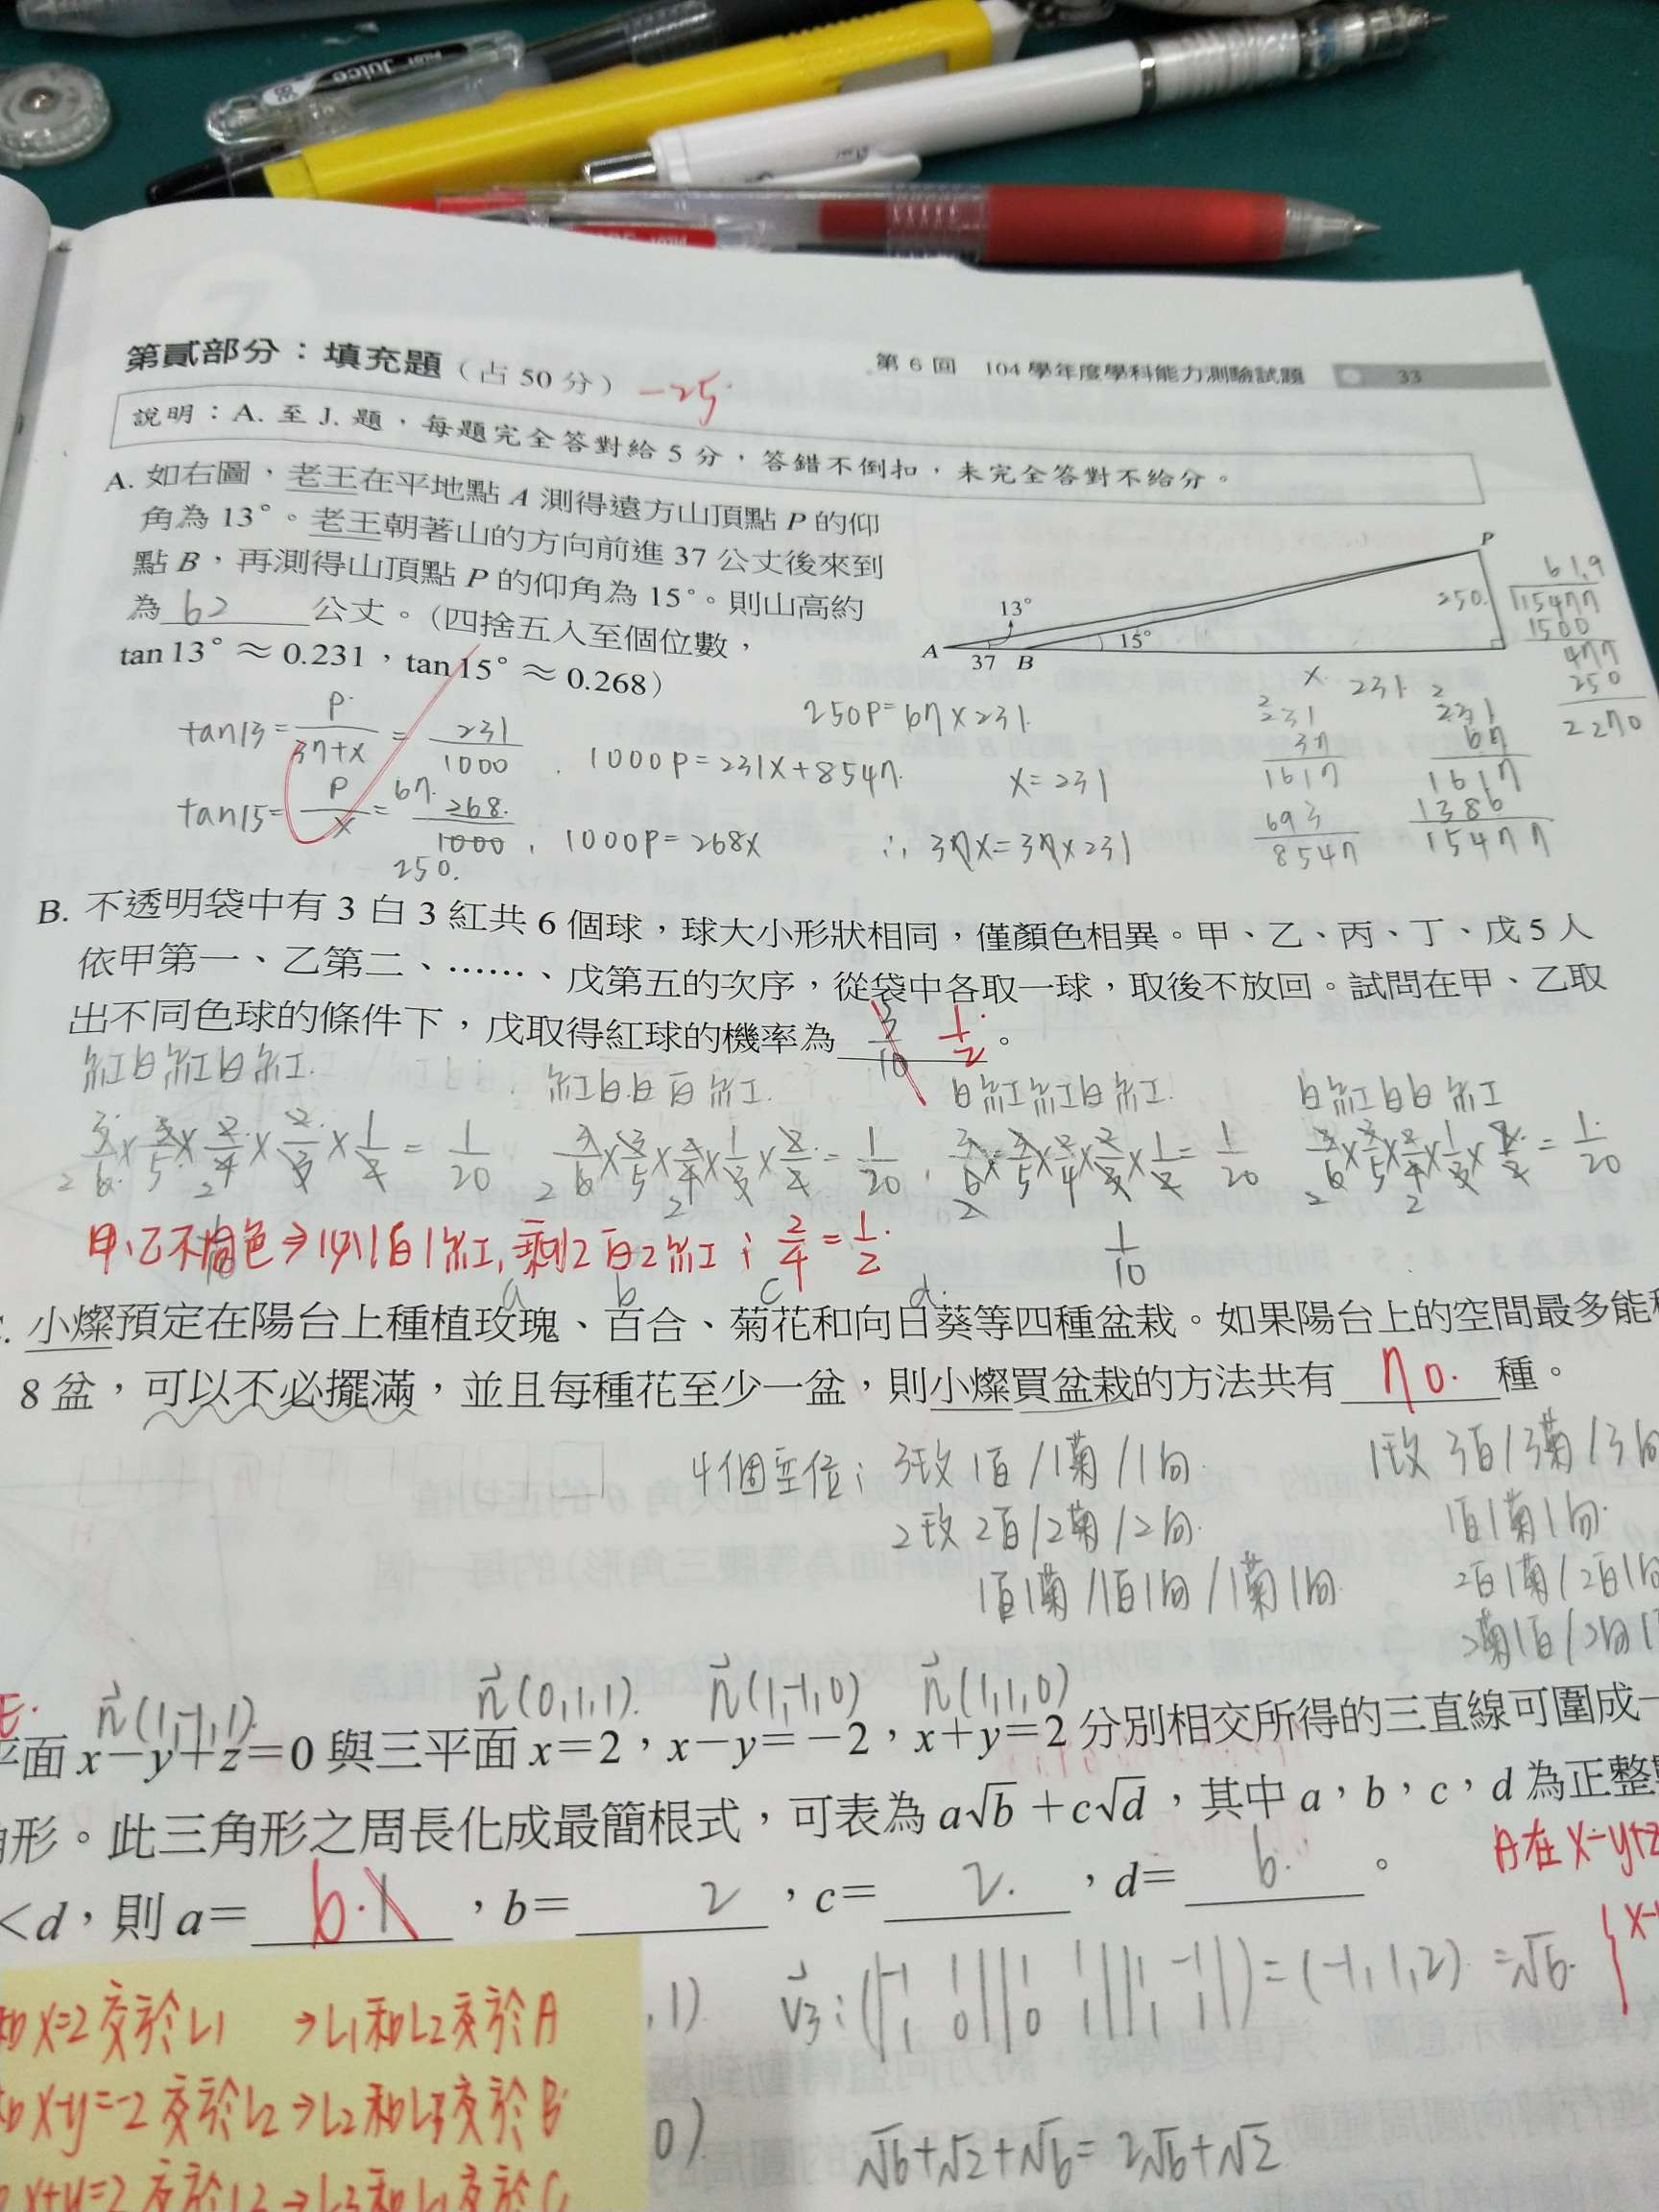 Juice
第 6 回 104 學年度學科能力測驗試題 33
第貳部分：填充題（占 50 分） -25
說明：A. 至 J. 題，每題完全答對給 5 分，答錯不倒扣，未完全答對不給分。
A. 如右圖，老王在平地點 A 測得遠方山頂點 P 的仰
角為 13°。老王朝著山的方向前進 37 公丈後來到
點 B，再測得山頂點 P 的仰角為 15°。則山高約
為 62 公丈。（四捨五入至個位數，
tan 13° ≈ 0.231，tan 15° ≈ 0.268）
P
13°
15°
A 37 B
x
61.9
250. 15477
1500
477
250
2270
tan13 = P/(37+x) = 231/1000 , 1000P=231x+8547.
tan15 = P/x = 268/1000 , 1000P=268x
67.
250.
250P=67×231.
x=231
∴ 37x=37×231
231
37
1617
693
8547
231
231
67
1617
1386
15477
B. 不透明袋中有 3 白 3 紅共 6 個球，球大小形狀相同，僅顏色相異。甲、乙、丙、丁、戊 5 人
依甲第一、乙第二、……、戊第五的次序，從袋中各取一球，取後不放回。試問在甲、乙取
出不同色球的條件下，戊取得紅球的機率為 1/2 。
紅白紅白紅. 紅白白白紅. 白紅紅白紅. 白紅白白紅
3/6×3/5×2/4×2/3×1/2 = 1/20
= 1/20
= 1/20
= 1/20
甲、乙不同色⇒1白1紅, 剩2白2紅; 2/4=1/2
1/10
a b c d.
小燦預定在陽台上種植玫瑰、百合、菊花和向日葵等四種盆栽。如果陽台上的空間最多能
8 盆，可以不必擺滿，並且每種花至少一盆，則小燦買盆栽的方法共有 70. 種。
4個空位; 3玫 1百/1菊/1向. 1玫 3百/3菊/3向
2玫 2百/2菊/2向. 1百1菊1向.
1百1菊/1百1向/1菊1向. 2百1菊/2百1向
2菊1百/2向1
n(1,-1,1) n(0,1,1). n(1,-1,0) n(1,1,0)
平面 x−y+z=0 與三平面 x=2，x−y=−2，x+y=2 分別相交所得的三直線可圍成一
角形。此三角形之周長化成最簡根式，可表為 a√b +c√d，其中 a，b，c，d 為正整
A在 x-y+z
<d，則 a= 6. ，b= 2 ，c= 2. ，d= 6. 。
和 x=2 交於 L1 → L1和L2交於A
,1)
v3: (|-1 1 1 0| |1 1 0 1| |1 -1 1 1|) = (-1,1,2) =√6.
x-y=-2 交於 L2 → L2和L3交於B
0)
√6+√2+√6=2√6+√2
x+y=2 交於 L3 → L3和L1交於C